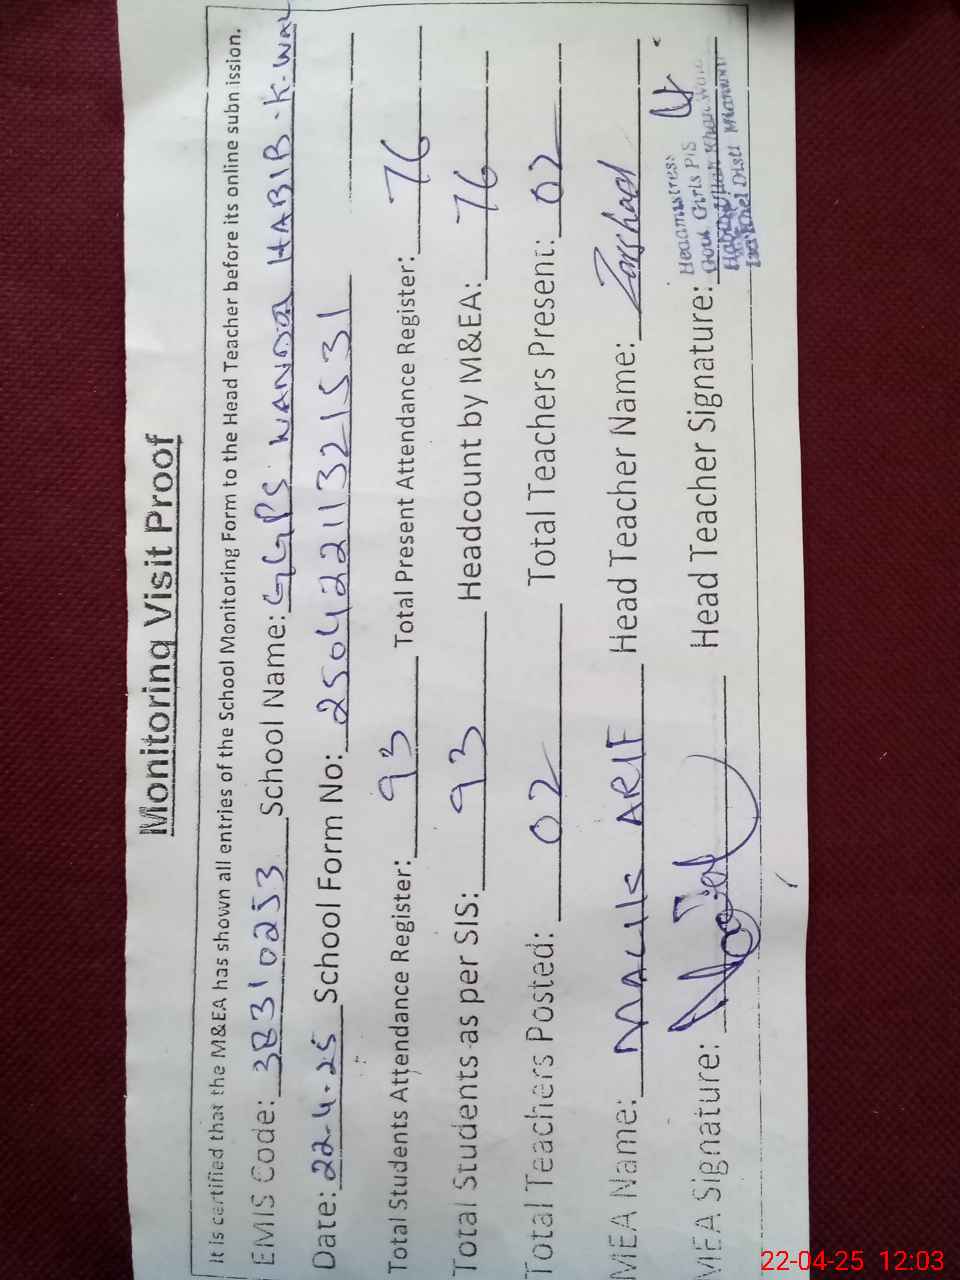 Monitoring Visit Proof
It is certified that the M&EA has shown all entries of the School Monitoring Form to the Head Teacher before its online submission.
EMIS Code: 38310253 School Name: GGPS WANDA HABIB.K.WAL
Date: 22-4-25 School Form No: 2504221132153 1
Total Students Attendance Register: 93 Total Present Attendance Register: 76
Total Students as per SIS: 93 Headcount by M&EA: 76
Total Teachers Posted: 02 Total Teachers Present: 02
MEA Name: MALIK ARIF Head Teacher Name: Zarshad
MEA Signature: Head Teacher Signature:
Headmistress
Govt Girls P/S
Khan Wala
Distt Mianwali
22-04-25 12:03